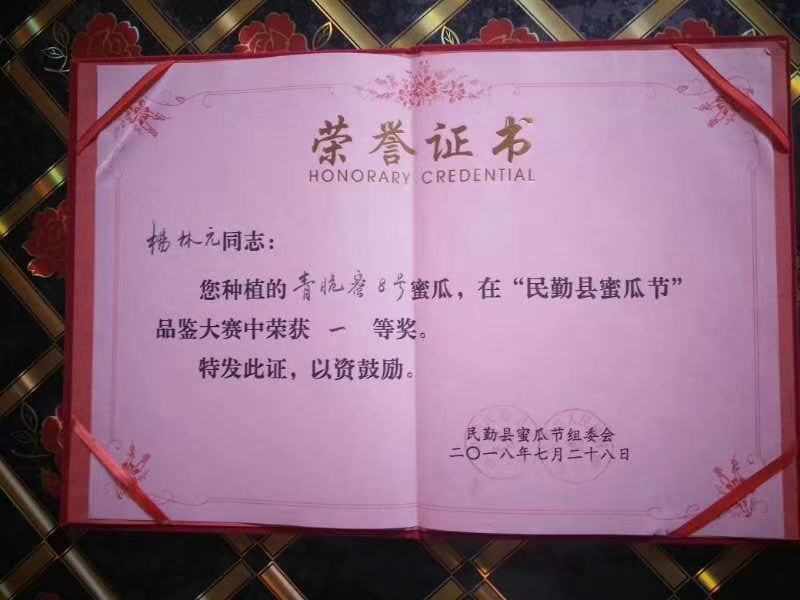 荣誉证书
HONORARY CREDENTIAL
杨林元同志：
您种植的青皖蜜8号蜜瓜，在“民勤县蜜瓜节”
品鉴大赛中荣获 一 等奖。
特发此证，以资鼓励。
民勤县蜜瓜节组委会
二〇一八年七月二十八日